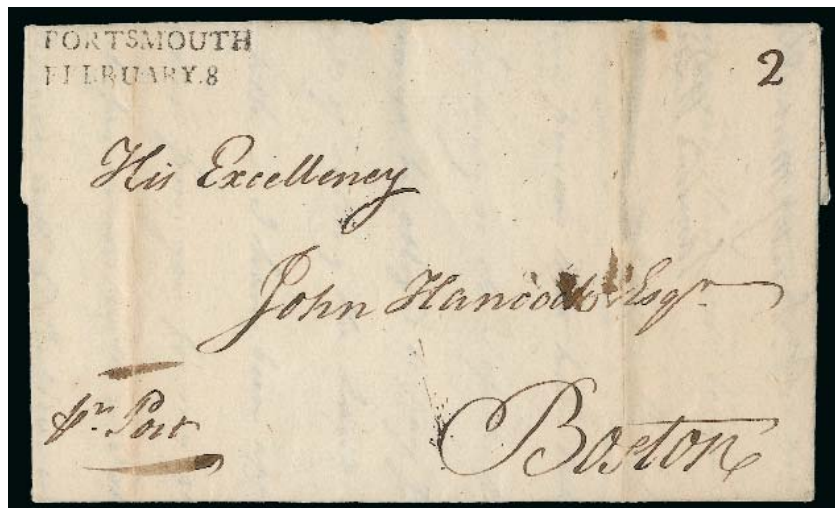 PORTSMOUTH
FEBRUARY.8
2
His Excellency
John Hancock Esqr
pr. Post
Boston